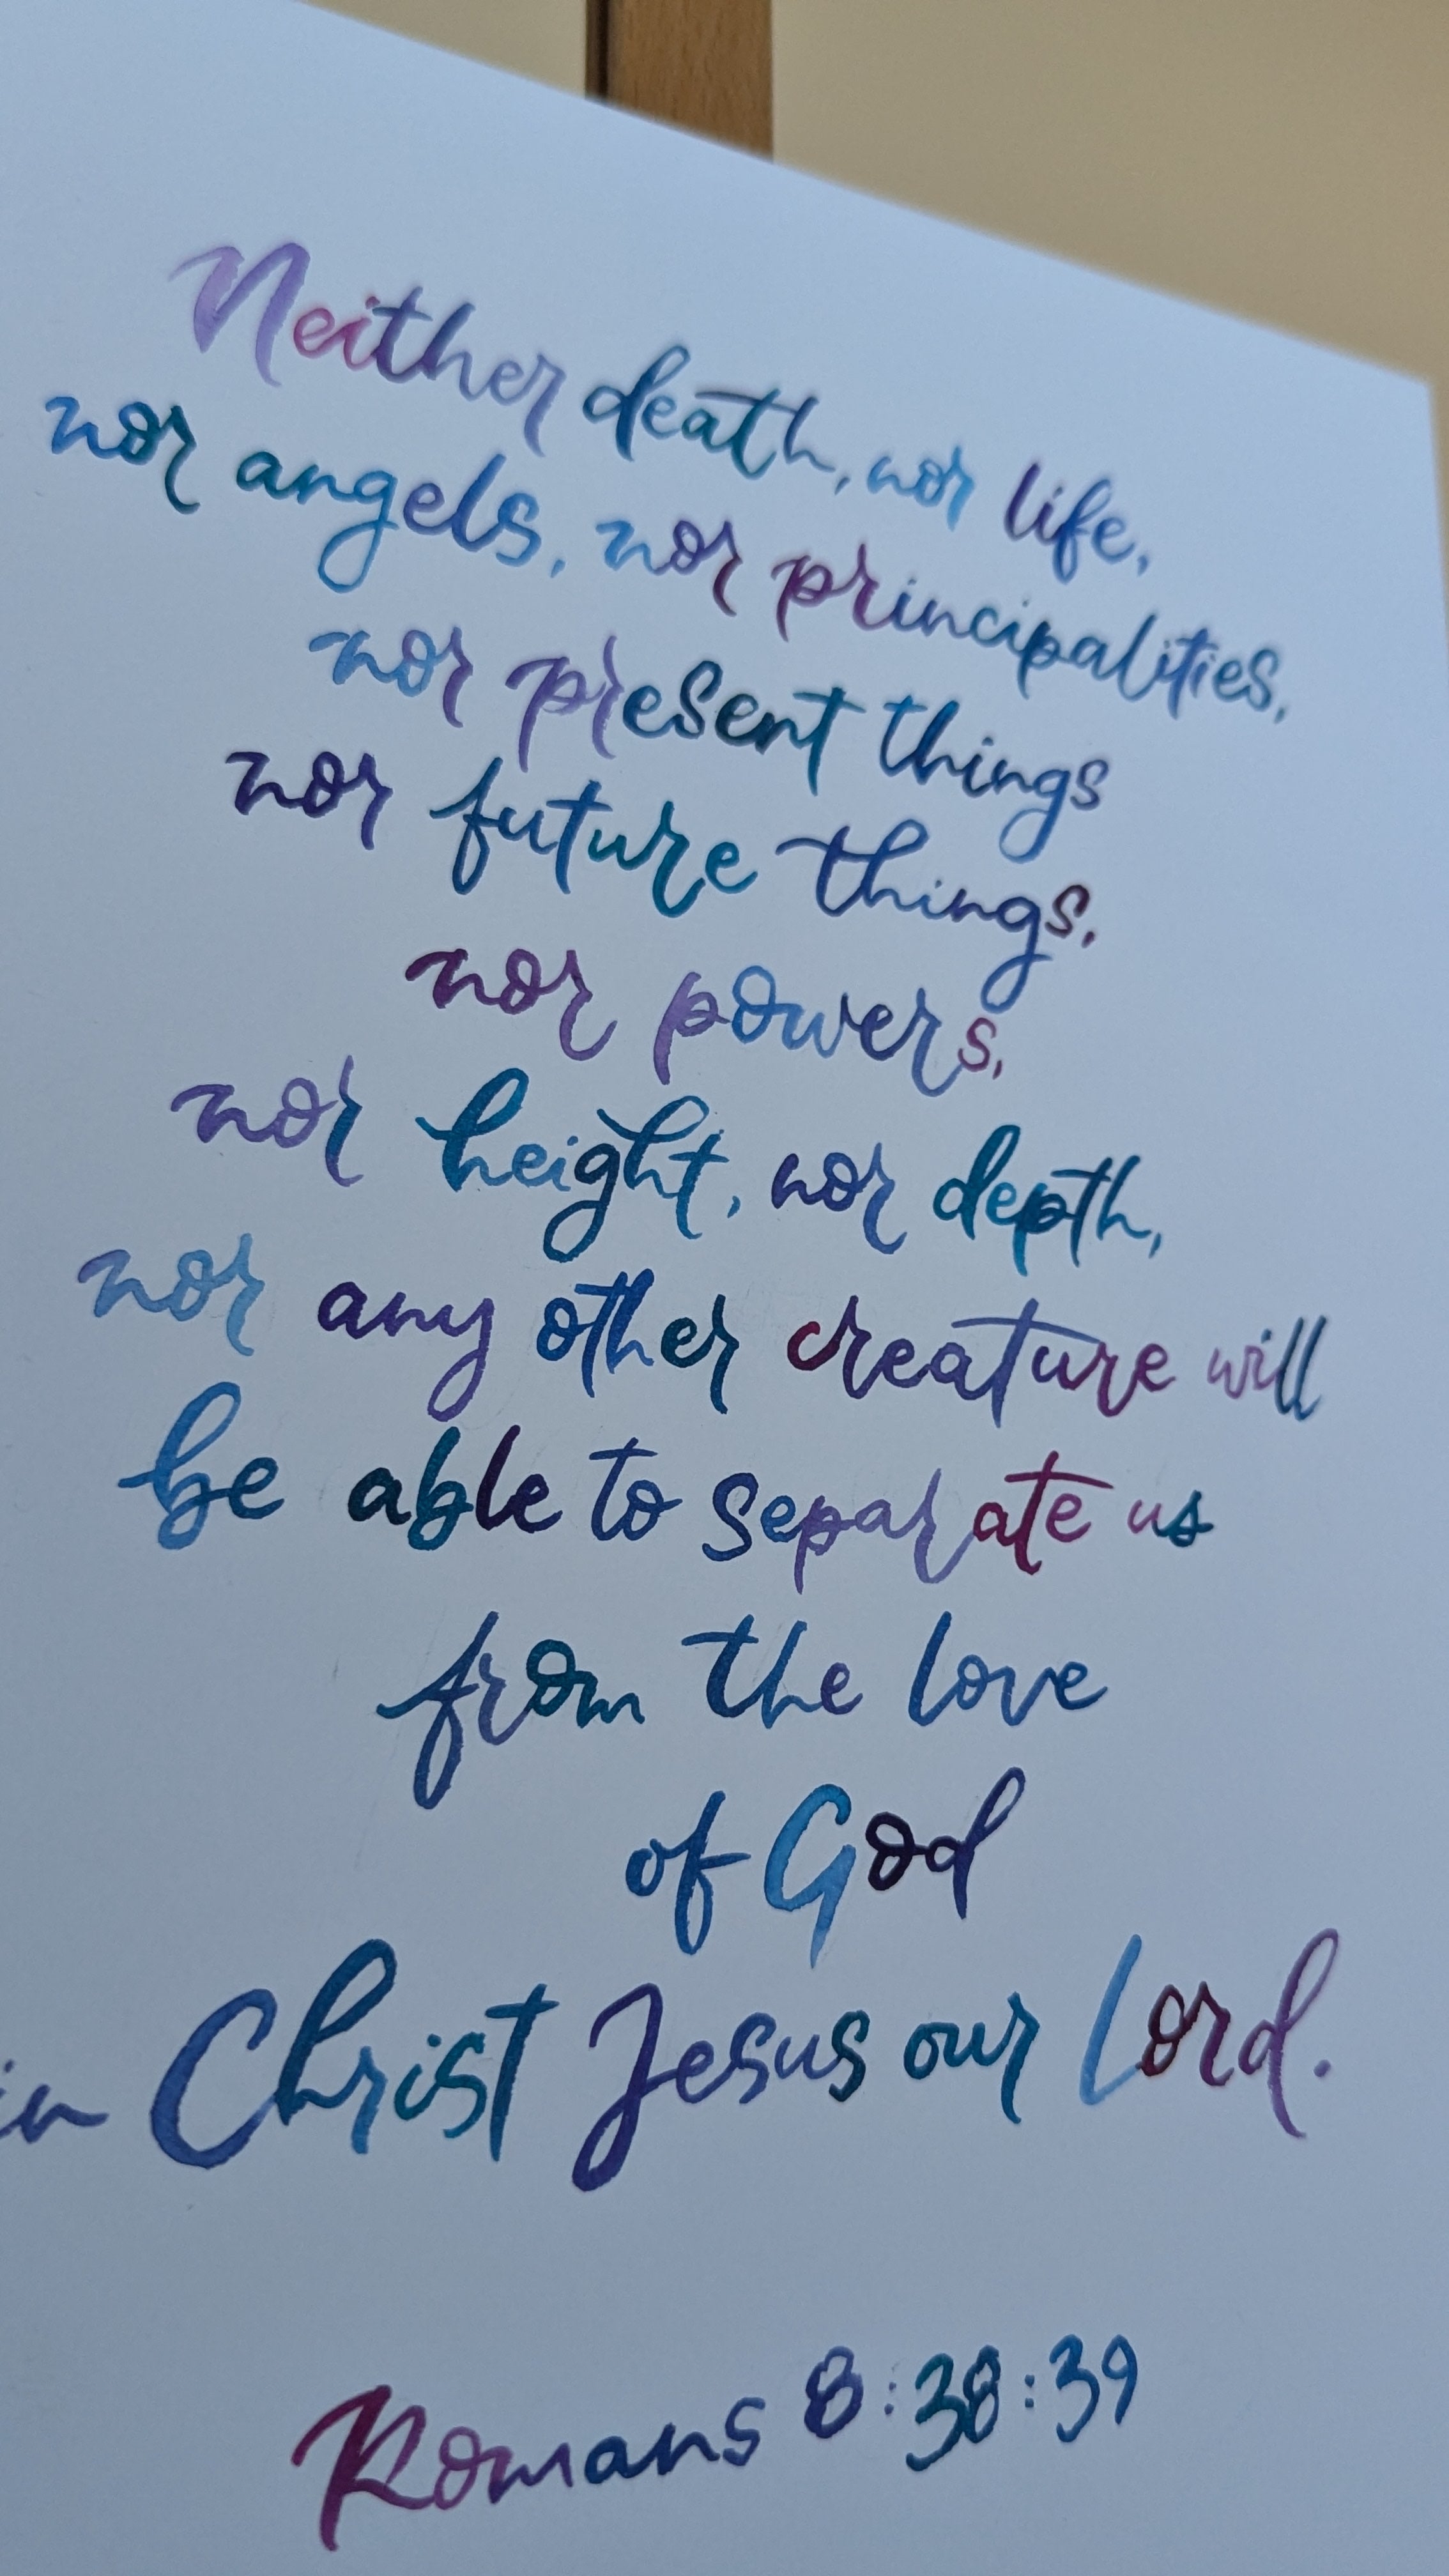 Neither death, nor life,
nor angels, nor principalities,
nor present things
nor future things,
nor powers,
nor height, nor depth,
nor any other creature will
be able to separate us
from the love
of God
in Christ Jesus our Lord.
Romans 8:38:39